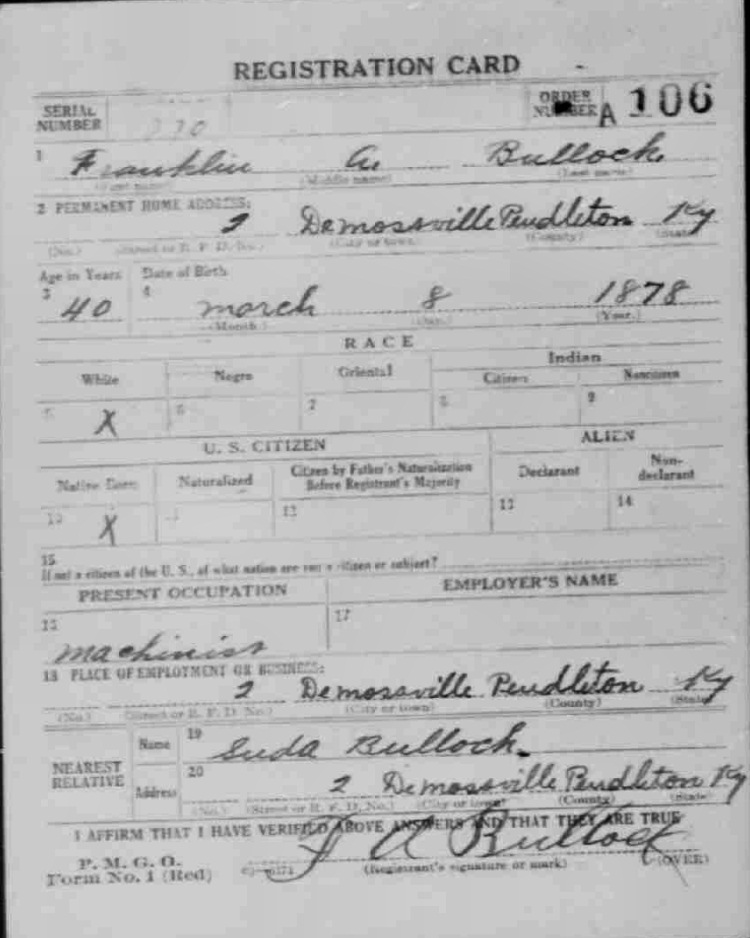 REGISTRATION CARD
SERIAL NUMBER 370 ORDER NUMBER A 106
1 Franklin A. Bullock
(First name) (Middle name) (Last name)
2 PERMANENT HOME ADDRESS:
2 Demossville Pendleton Ky
(No.) (Street or R. F. D. No.) (City or town) (County) (State)
Age in Years Date of Birth
3 40 4 March 8 1878
(Month.) (Day.) (Year.)
RACE
White Negro Oriental Indian
Citizen Noncitizen
5 X 6 7 8 9
U. S. CITIZEN ALIEN
Native Born Naturalized Citizen by Father's Naturalization Before Registrant's Majority Declarant Non-declarant
10 X 11 12 13 14
15
If not a citizen of the U. S., of what nation are you a citizen or subject?
PRESENT OCCUPATION EMPLOYER'S NAME
16 17
machinist
18 PLACE OF EMPLOYMENT OR BUSINESS:
2 Demossville Pendleton Ky
(No.) (Street or R. F. D. No.) (City or town) (County) (State)
NEAREST RELATIVE Name 19 Suda Bullock.
Address 20 2 Demossville Pendleton Ky
(No.) (Street or R. F. D. No.) (City or town) (County) (State)
I AFFIRM THAT I HAVE VERIFIED ABOVE ANSWERS AND THAT THEY ARE TRUE
P. M. G. O.
Form No. 1 (Red) F A Bullock
(Registrant's signature or mark) (OVER)